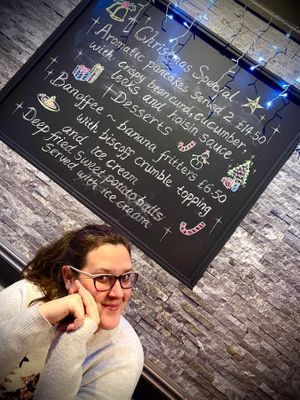 Christmas Special
Aromatic pancakes serves 2 £14.50
with crispy bean curd, cucumber,
leeks and hoisin sauce.
~Desserts~
Banoffee ~ banana fritters £6.50
with biscoff crumble topping
and ice cream
Deep fried sweet potato balls
served with ice cream